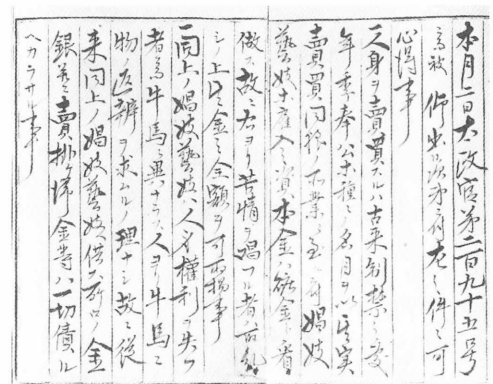 本月二日太政官第二百九十五号
被 仰出次第有之左之件々可
心得事
一人身ヲ賣買スルハ古来制禁ノ處
年季奉公等種々ノ名目ヲ以テ其実
賣買同様ノ所業ニ至ルニ付娼妓
藝妓等雇入ノ資本金ハ贓金ト看
做ス故ニ右ヨリ苦情ヲ唱フル者ハ取糺
ノ上其金ノ全額ヲ可取揚事
一同上ノ娼妓藝妓ハ人身ノ權利ヲ失フ
者ニテ牛馬ニ異ナラス人ヨリ牛馬ニ
物ノ返辨ヲ求ムルノ理ナシ故ニ従
来同上ノ娼妓藝妓ヘ借ス所ノ金
銀並ニ賣掛滞金等ハ一切債ル
ヘカラサル事